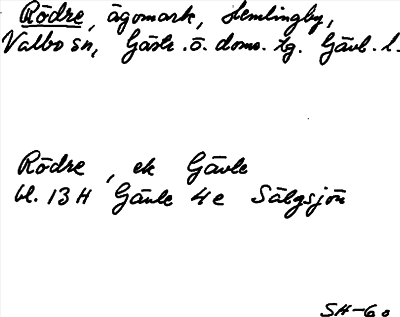 Rödre, ägomark, Hemlingby,
Valbo sn, Gästr. ö. doms. tg. Gävl. l.
Rödre, ek Gävle
bl. 13 H Gävle 4 e Sälgsjön
SH-60